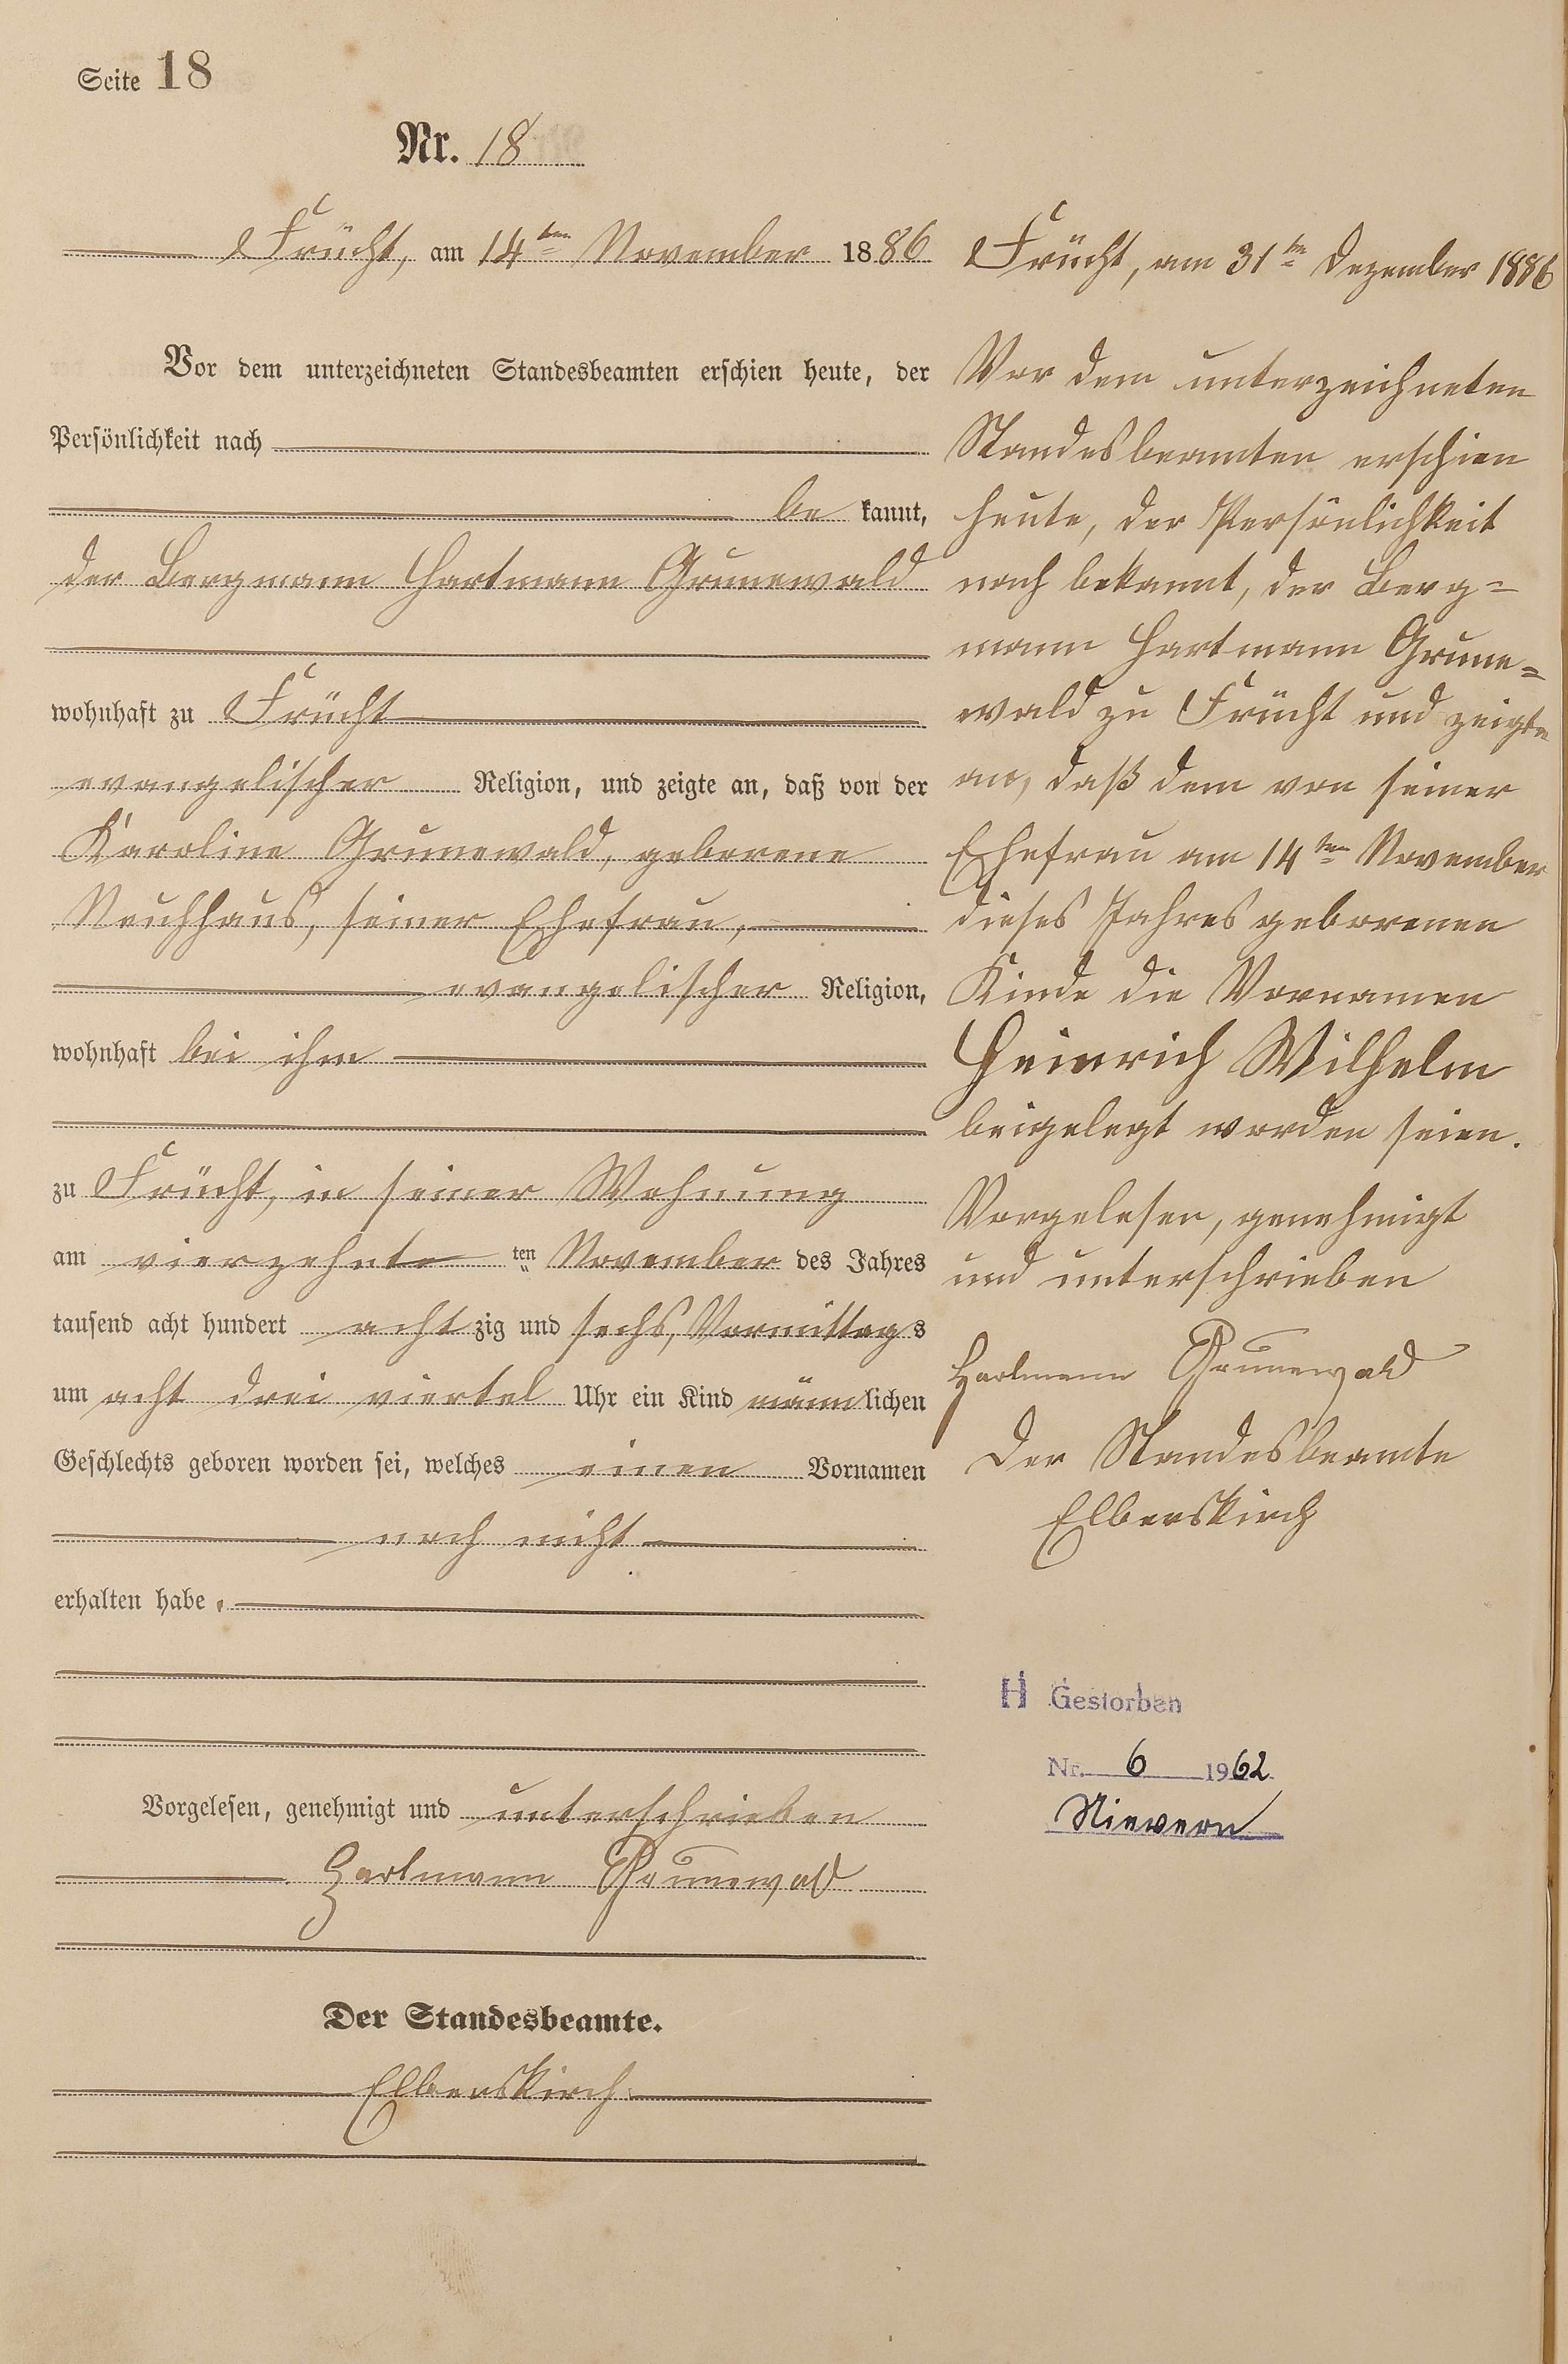 Seite 18
Nr. 18
Frücht, am 14ten November 1886
Vor dem unterzeichneten Standesbeamten erschien heute, der
Persönlichkeit nach
be kannt,
der Bergmann Hartmann Grunewald
wohnhaft zu Frücht
evangelischer Religion, und zeigte an, daß von der
Karoline Grunewald, geborene
Neuhhaus, seiner Ehefrau,
evangelischer Religion,
wohnhaft bei ihm
zu Frücht, in seiner Wohnung
am vierzehnte ten November des Jahres
tausend acht hundert acht zig und sechs, Vormittags
um acht drei viertel Uhr ein Kind männlichen
Geschlechts geboren worden sei, welches einen Vornamen
noch nicht
erhalten habe.
Vorgelesen, genehmigt und unterschrieben
Hartmann Grunewald
Der Standesbeamte.
Elberskirch
Frücht, am 31ten Dezember 1886
Vor dem unterzeichneten
Standesbeamten erschien
heute, der Persönlichkeit
nach bekannt, der Berg=
mann Hartmann Grune=
wald zu Frücht und zeigte
an, daß dem von seiner
Ehefrau am 14ten November
dieses Jahres geborenen
Kinde die Vornamen
Heinrich Wilhelm
beigelegt worden seien.
Vorgelesen, genehmigt
und unterschrieben
Hartmann Grunewald
Der Standesbeamte
Elberskirch
H Gestorben
Nr. 6 1962
Nievern